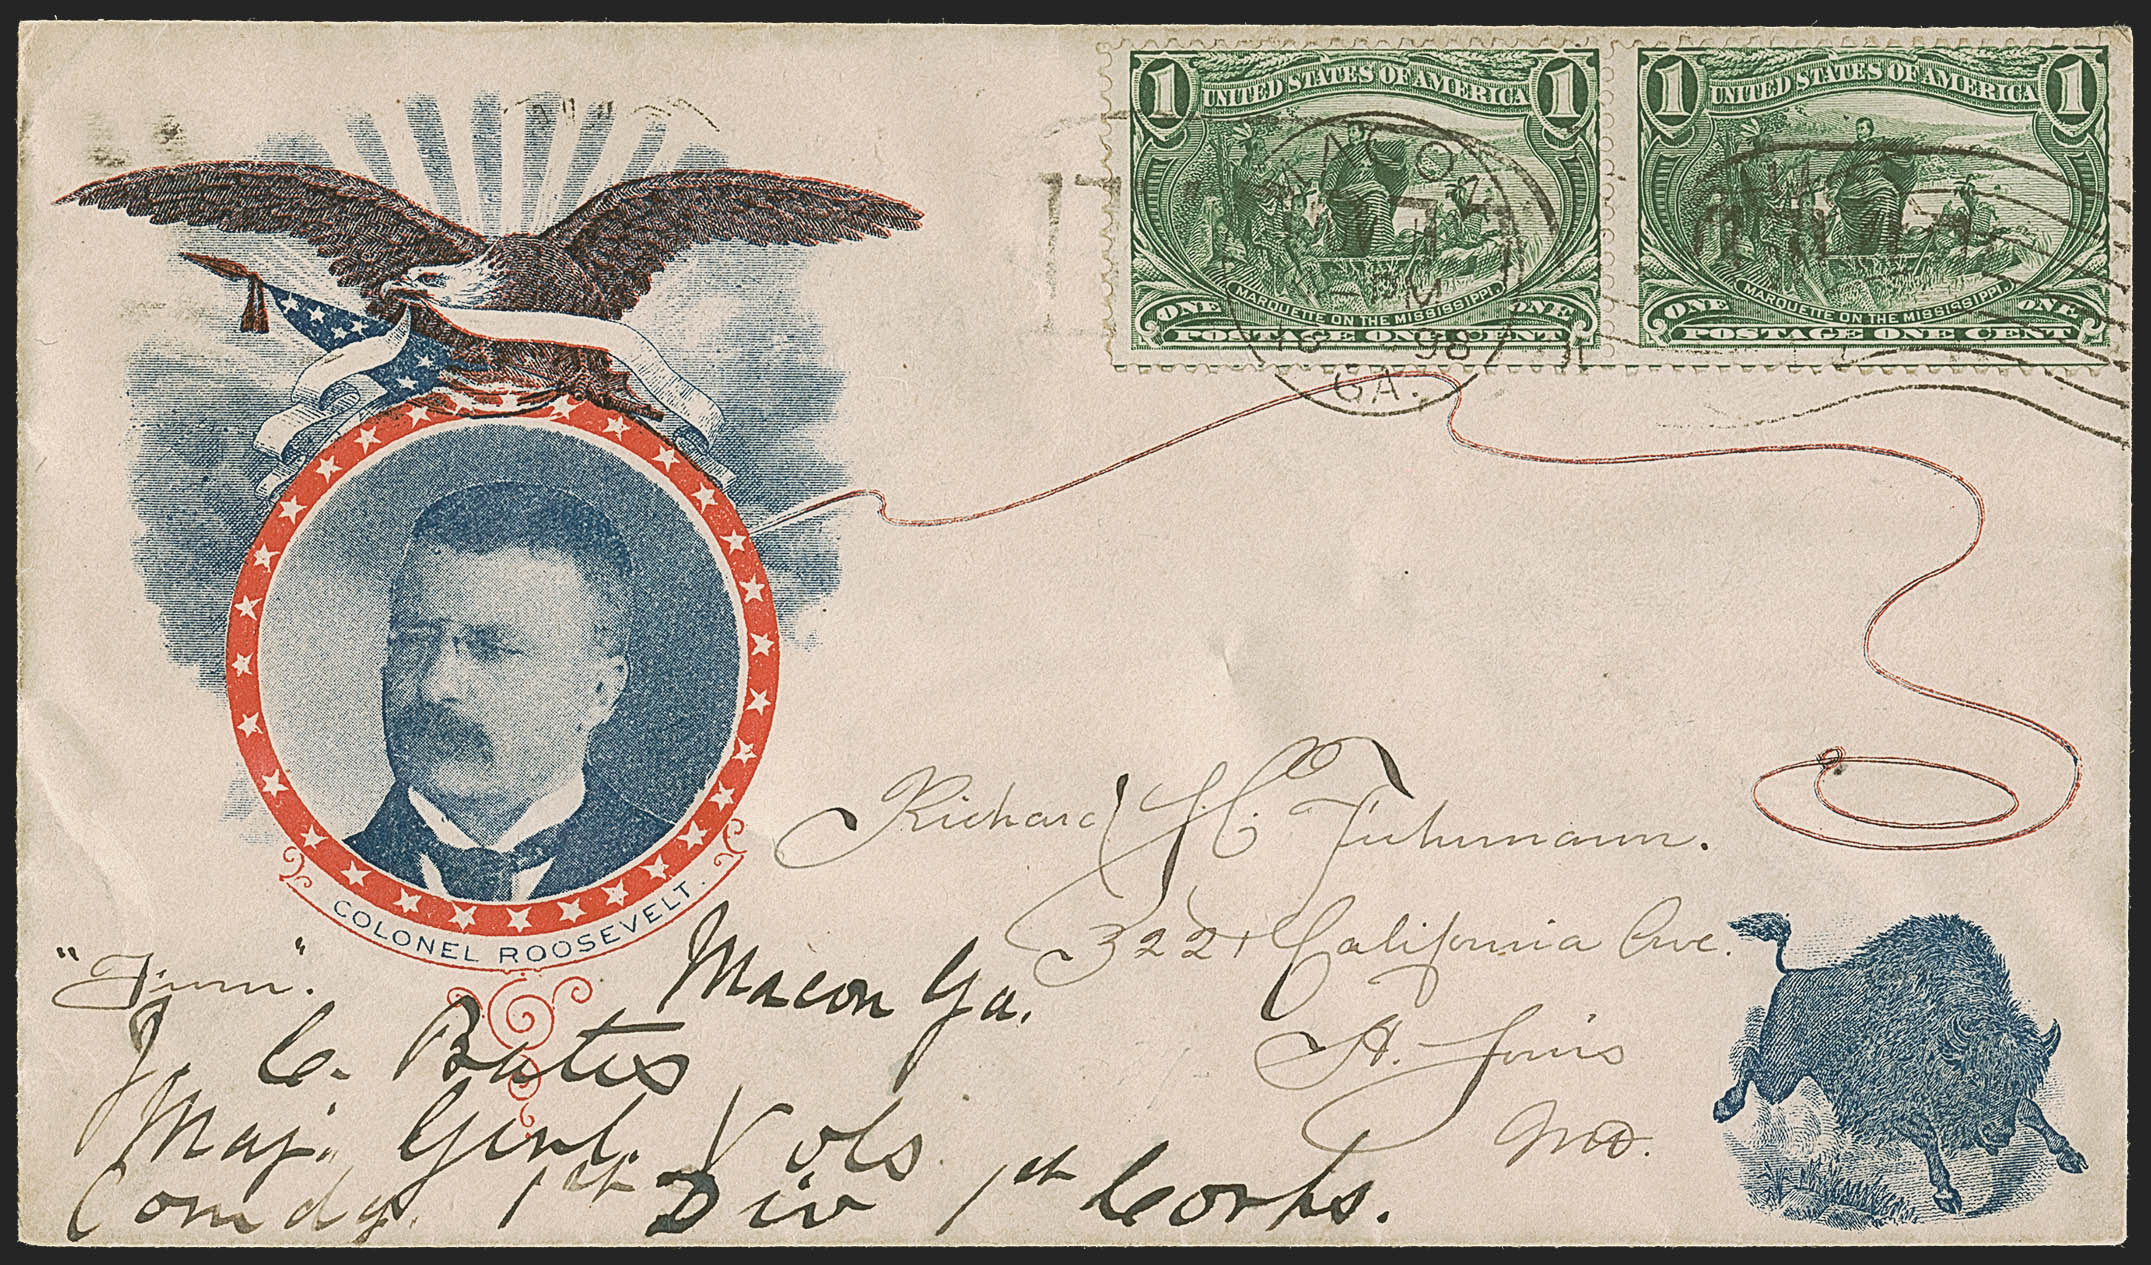 1 UNITED STATES OF AMERICA 1
MARQUETTE ON THE MISSISSIPPI.
ONE ONE
POSTAGE ONE CENT
1 UNITED STATES OF AMERICA 1
MARQUETTE ON THE MISSISSIPPI.
ONE ONE
POSTAGE ONE CENT
MACON
98
GA.
COLONEL ROOSEVELT.
Richard H.
322 California Ave.
St. Louis
Mo.
Macon Ga.
J. C. Bates
Maj. Genl. Vols
Comdg. 1st Div 1st Corps.